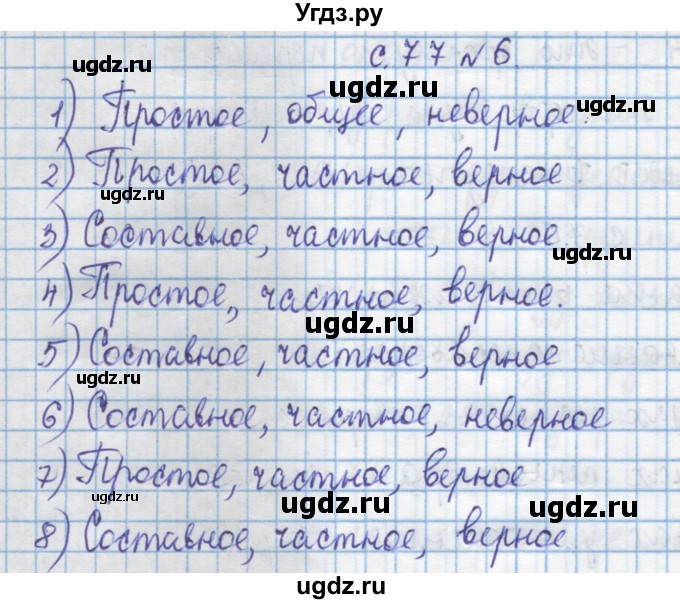 Угдз.ру
с. 77 № 6.
ugdz.ru
ugdz.ru
1) Простое, общее, неверное.
2) Простое, частное, верное.
ugdz.ru
ugdz.ru
3) Составное, частное, верное.
ugdz.ru
4) Простое, частное, верное.
ugdz.ru
5) Составное, частное, верное
ugdz.ru
ugdz.ru
6) Составное, частное, неверное
7) Простое, частное, верное
ugdz.ru
ugdz.ru
ugdz.ru
8) Составное, частное, верное
ugdz.ru